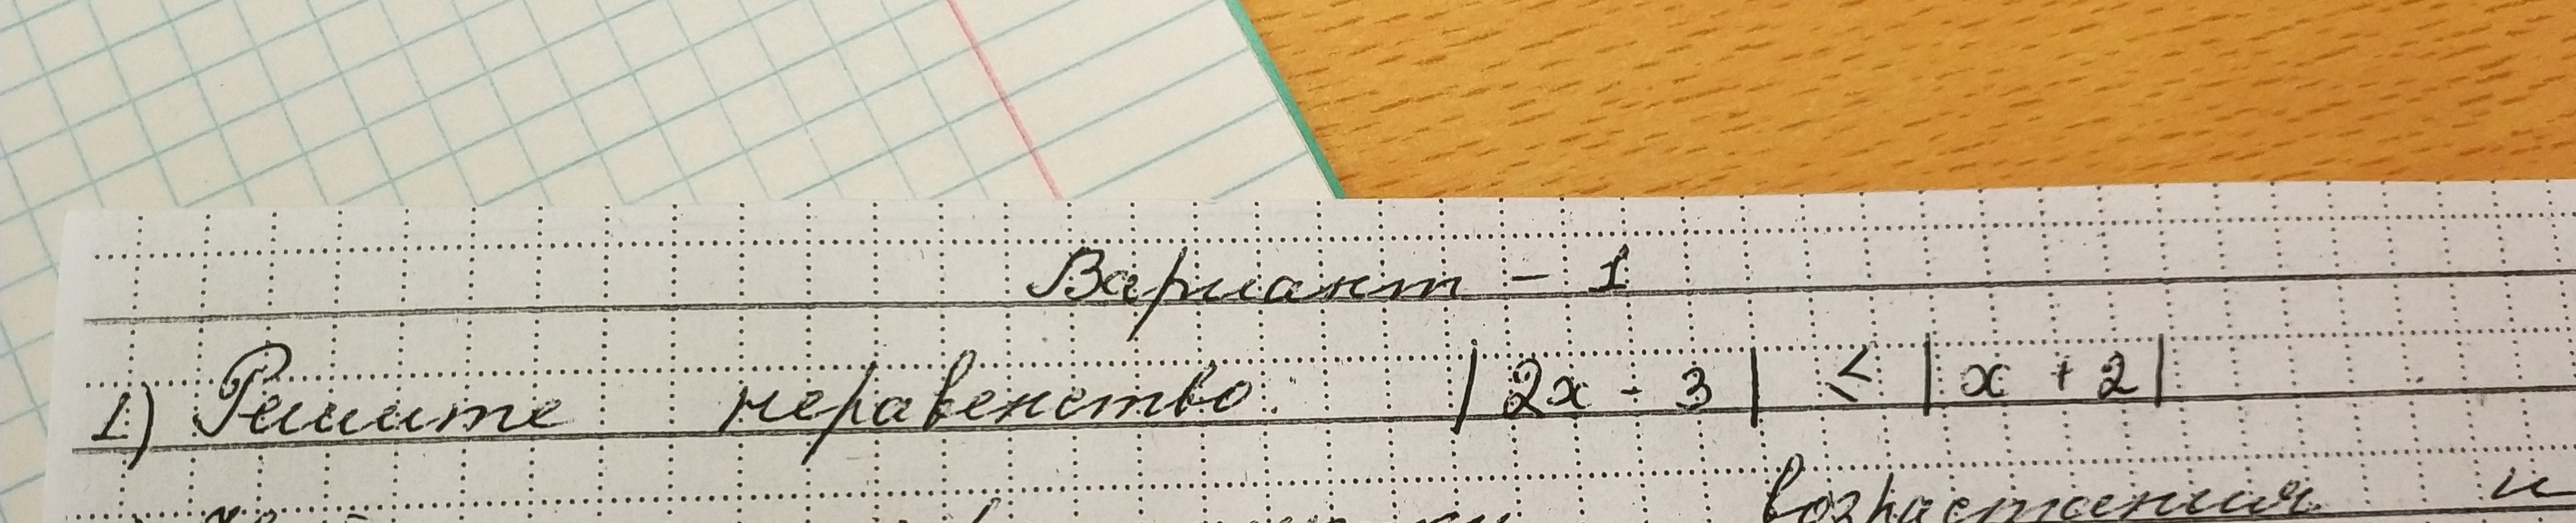 Вариант - 1
1) Решите неравенство. |2x - 3| ≤ |x + 2|
возрастания и